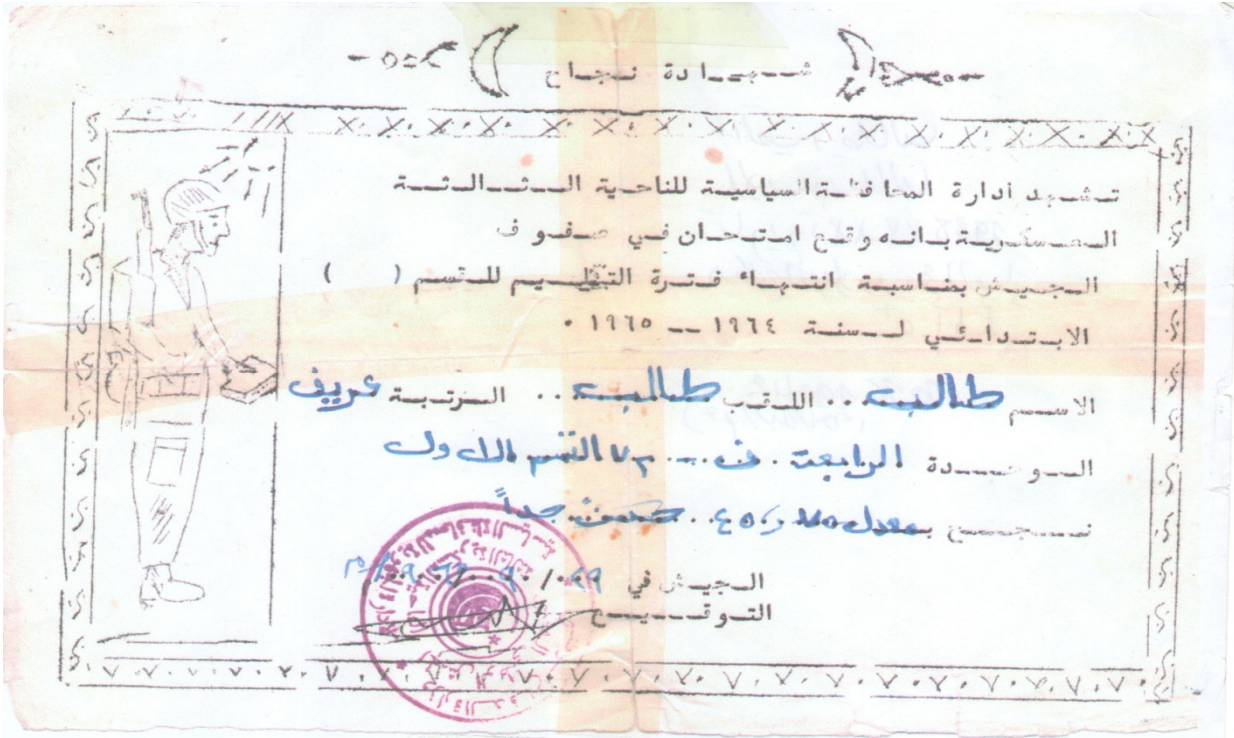 شهادة نجاح
تشهد ادارة المحافظة السياسية للناحية الثالثة
العسكرية بانه وقع امتحان في صفوف
الجيش بمناسبة انتهاء فترة التعليم للقسم ( )
الابتدائي لسنة ١٩٦٤ -- ١٩٦٥ .
الاسم طالب ... اللقب طالب .. الرتبة عريف
الوحدة الرابعة . ف ... القسم الاول
نجح بمعدل .. حسن جداً
الجيش في
التوقيع